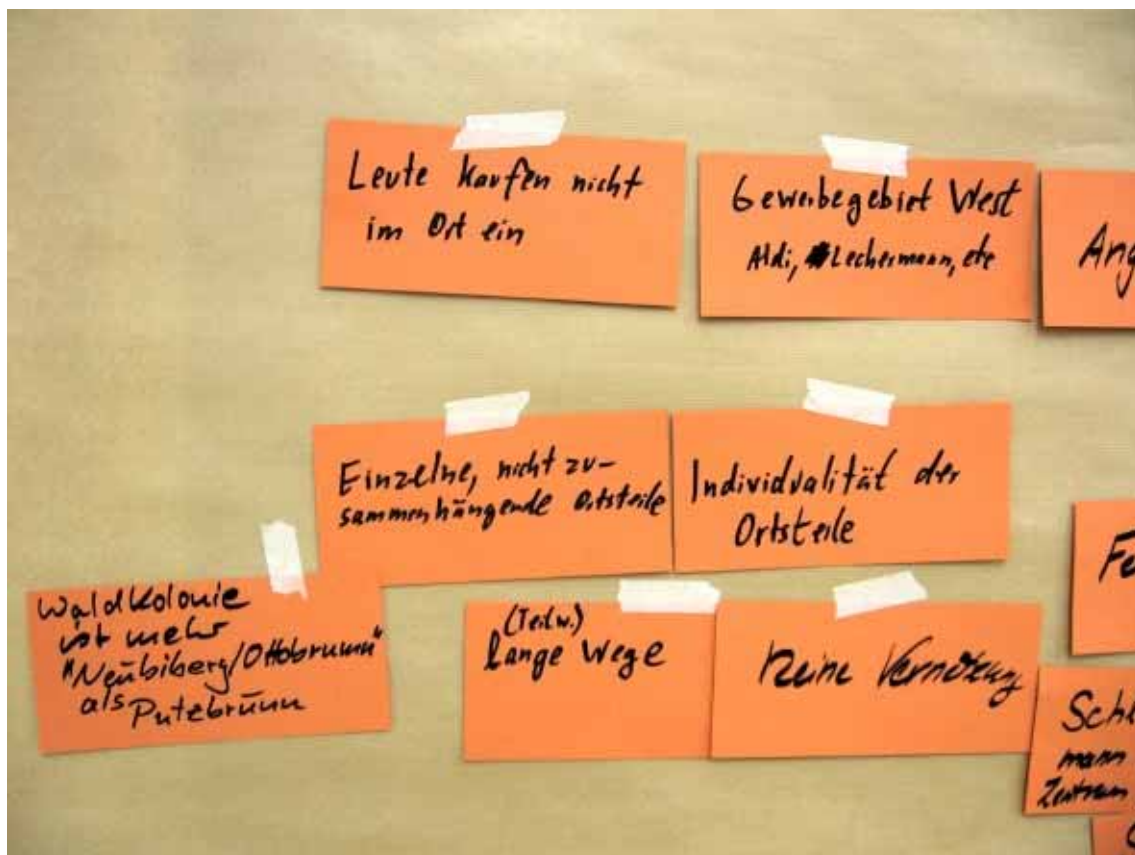 Leute kaufen nicht
im Ort ein
Gewerbegebiet West
Aldi, Lechermann, etc
Ang
Einzelne, nicht zu-
sammenhängende Ortsteile
Individualität der
Ortsteile
Fo
Waldkolonie
ist mehr
"Neubiberg/Ottobrunn"
als Putzbrunn
(Teilw.)
lange Wege
Keine Vernetzung
Schl
mann
Zentrum